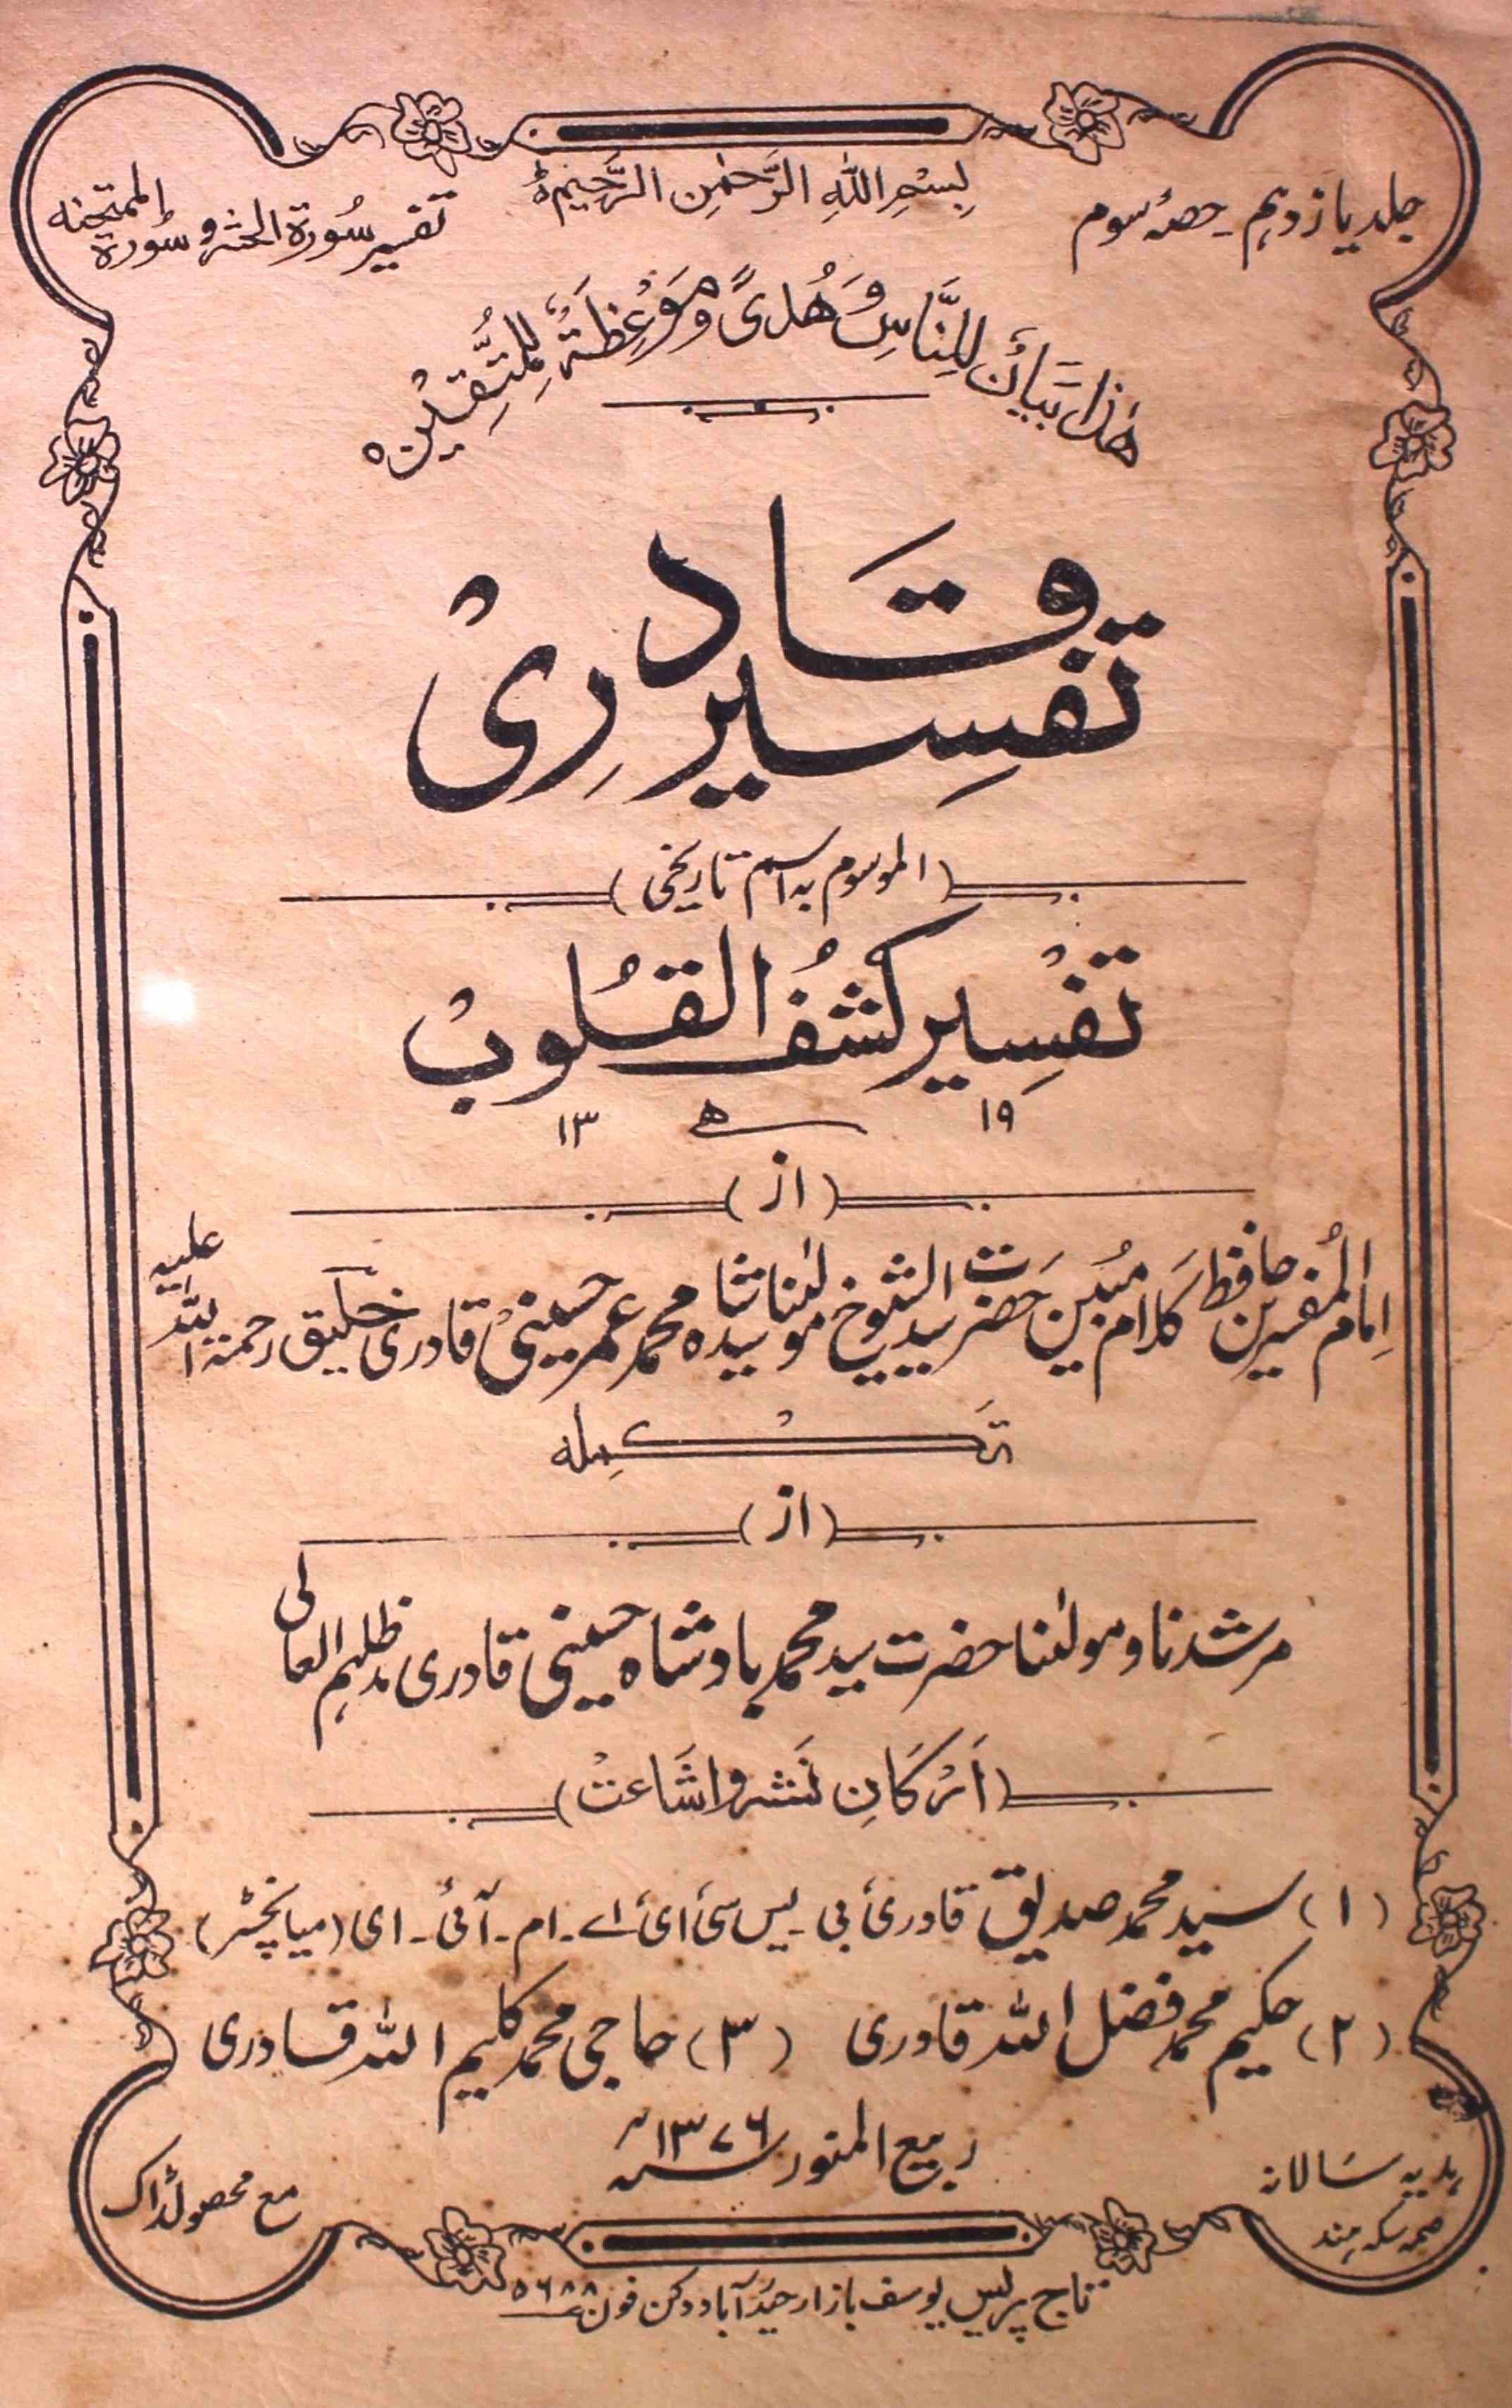 جلد یازدہم۔ حصۂ سوم
بِسْمِ اللّٰهِ الرَّحْمٰنِ الرَّحِيْمِ
تفسیر سُورۃ الحشر و سُورۃ الممتحنہ
هٰذَا بَيَانٌ لِّلنَّاسِ وَهُدًى وَّمَوْعِظَةٌ لِّلْمُتَّقِيْنَ ٥
تفسِیر قَادرِیْ
(الموسوم بہ اسم تاریخی)
تفْسِیر کشفُ القُلوبْ
۱۹ ھ ۱۳
(از)
اِمام المُفسرین حافظ کَلام مُبین حَضرت سید الشیوخ مولٰنا سیدشاہ محمد عمر حسینیْ قادری خلیق رحمۃ اللہ علیہ
تَکْمِلہ
(از)
مرشدنا و مولٰنا حضرت سید محمد بادشاہ حسینی قادری مدظلہم العالی
(اَرْکَانِ نَشر و اشَاعتْ)
(۱) سید محمد صدیق قادری بی۔یس سی ای اے۔ام۔آئی۔ای (میانچسٹر)
(۲) حکیم محمد فضل اللہ قادری (۳) حاجی محمد کلیم اللہ قادری
ربیع المنور سنہ ۱۳۷۶ھ
ہدیہ سَالانہ
سکہ ہند
مع محصولڈاک
تاج پریس یوسف بازار حیدرآباد دکن فون ۵۶۸۸